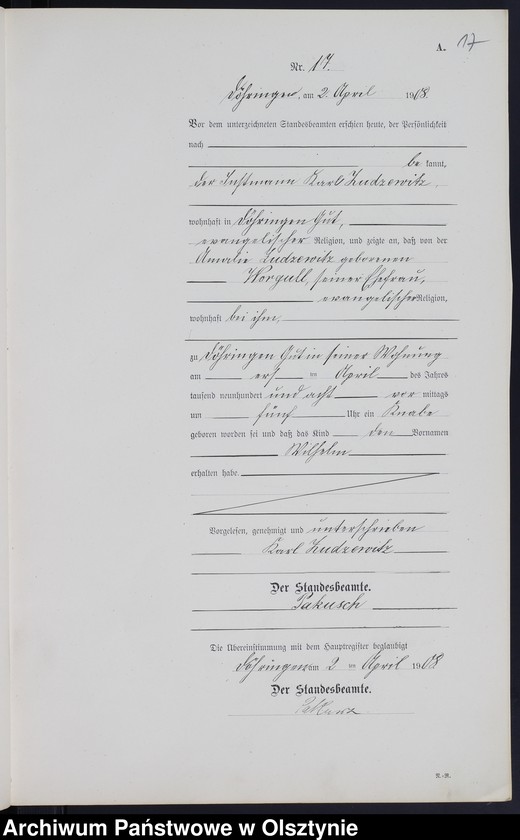 A. 17
Nr. 17.
Döhringen, am 2. April 1908.
Vor dem unterzeichneten Standesbeamten erschien heute, der Persönlichkeit
nach
be kannt,
der Instmann Karl Ludzewitz,
wohnhaft in Döhringen Gut,
evangelischer Religion, und zeigte an, daß von der
Amalie Ludzewitz geborenen
Worgull, seiner Ehefrau,
evangelischer Religion,
wohnhaft bei ihm,
zu Döhringen Gut in seiner Wohnung
am erst en April des Jahres
tausend neunhundert und acht vor mittags
um fünf Uhr ein Knabe
geboren worden sei und daß das Kind den Vornamen
Wilhelm
erhalten habe.
Vorgelesen, genehmigt und unterschrieben
Karl Ludzewitz
Der Standesbeamte.
Die Übereinstimmung mit dem Hauptregister beglaubigt
Döhringen am 2 ten April 1908
Der Standesbeamte.
N.-R.
Archiwum Państwowe w Olsztynie